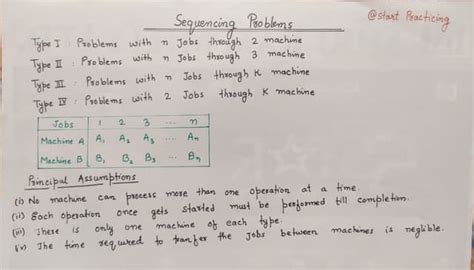 Sequencing Problems
@Start Practicing
Type I : Problems with n Jobs through 2 machine
Type II : Problems with n Jobs through 3 machine
Type III : Problems with n Jobs through K machine
Type IV : Problems with 2 Jobs through K machine
Jobs 1 2 3 .... n
Machine A A₁ A₂ A₃ .... Aₙ
Machine B B₁ B₂ B₃ .... Bₙ
Principal Assumptions
(i) No machine can process more than one operation at a time.
(ii) Each operation once gets started must be performed till completion.
(iii) There is only one machine of each type.
(iv) The time required to tranfer the Jobs between machines is neglible.